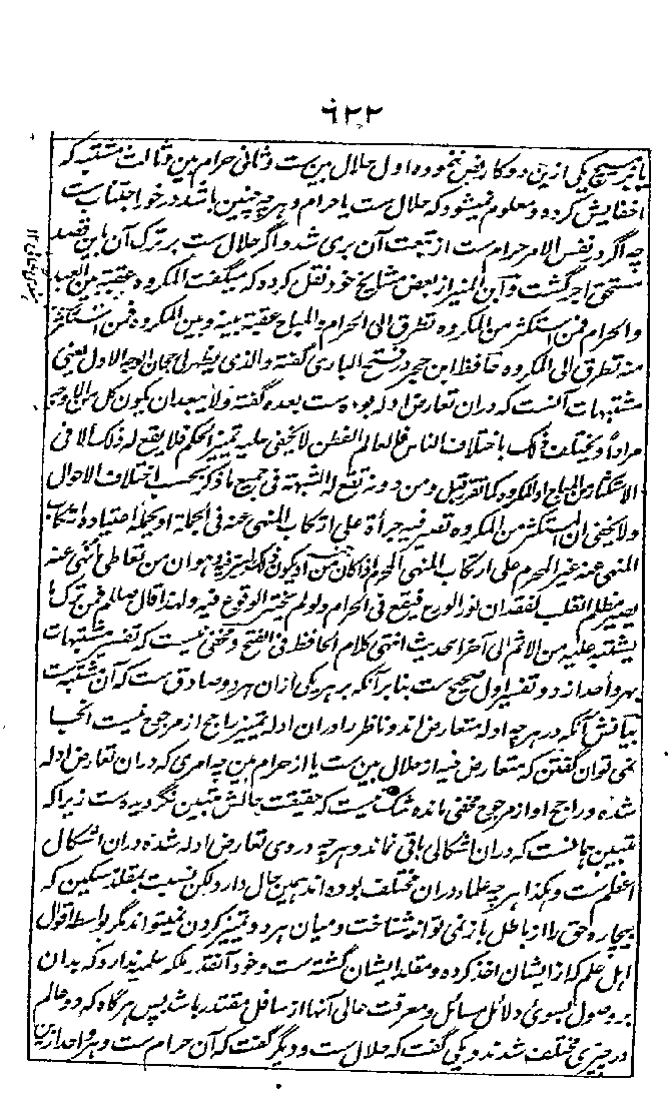 ۶۲۲
یا بر هیچ یکی ازین دو کار نص ننموده اول حلال بین ست و ثانی حرام بین و ثالث مشتبه که
اخفایش کرده و معلوم نمیشود که حلال ست یا حرام و هرچه چنین باشد در خور اجتناب ست
چه اگر در نفس الامر حرام ست از تبعت آن بری شد و اگر حلال ست بر ترک آن باین قصد
مستحق اجر گشت و ابن المنیر از بعض مشایخ خود نقل کرده که میگفت المکروه عقبة بین العبد
والحرام فمن استکثر من المکروه تطرق الی الحرام والمباح عقبة بینه وبین المکروه فمن استکثر
منه تطرق الی المکروه حافظ ابن حجر در فتح الباری گفته والذی یظهر لی رجحان الوجه الاول یعنی
مشتبهات آنست که دران تعارض ادله بوده ست بعده گفته ولا یبعد ان یکون کل من الاوجه
مرادا ویختلف ذلک باختلاف الناس فالعالم الفطن لا یخفی علیه تمییز الحکم فلا یقع له ذلک الا فی
الاستکثار من المباح او المکروه کما تقرر قبل ومن دونه تقع له الشبهة فی جمیع ما ذکر بحسب اختلاف الاحوال
ولا یخفی ان المستکثر من المکروه تصیر فیه جرأة علی ارتکاب المنهی عنه فی الجملة او یحمله اعتیاده ارتکاب
المنهی عنه غیر المحرم علی ارتکاب المنهی المحرم اذا کان من جنسه او یکون ذلک لسر فیه وهو ان من تعاطی ما نهی عنه
یصیر مظلم القلب لفقدان نور الورع فیقع فی الحرام ولو لم یختر الوقوع فیه ولهذا قال صللم فمن ترک ما
یشتبه علیه من الاثم الی آخر الحدیث انتهی کلام الحافظ فی الفتح و مخفی نیست که تفسیر مشتبهات
بهر واحد از دو تفسیر اول صحیح ست بنا بر آنکه بر هر یکی ازان هر دو صادق ست که آن مشتبه ست
بیانش آنکه در هرچه ادله متعارض اند و ناظر را دران ادله تمییز راجح از مرجوح نیست آنجا
نمی توان گفتن که متعارض فیه از حلال بین ست یا از حرام بین چه امری که دران تعارض ادله
شده و راجح او از مرجوح مخفی مانده شک نیست که حقیقت حالش متبین نگردیده ست زیرا که
متبین همانست که دران اشکالی باقی نماند و هرچه دروی تعارض ادله شده دران اشکال
اعظم ست و هکذا هرچه علما دران مختلف بوده اند همین حال دارد لکن نسبت بمقلد مسکین که
بیچاره حق را از باطل باز نمی تواند شناخت و میان هر دو تمییز کردن نمیتواند مگر بواسطه اقوال
اهل علم که از ایشان اخذ کرده و مقلد ایشان گشته ست و خود آنقدر ملکه علمیه ندارد که بدان
بر وصول بسوی دلائل مسائل و معرفت عالی آنها از سافل مقتدر باشد پس هرگاه که دو عالم
در چیزی مختلف شدند و یکی گفت که حلال ست و دیگر گفت که آن حرام ست و هر واحد ازین